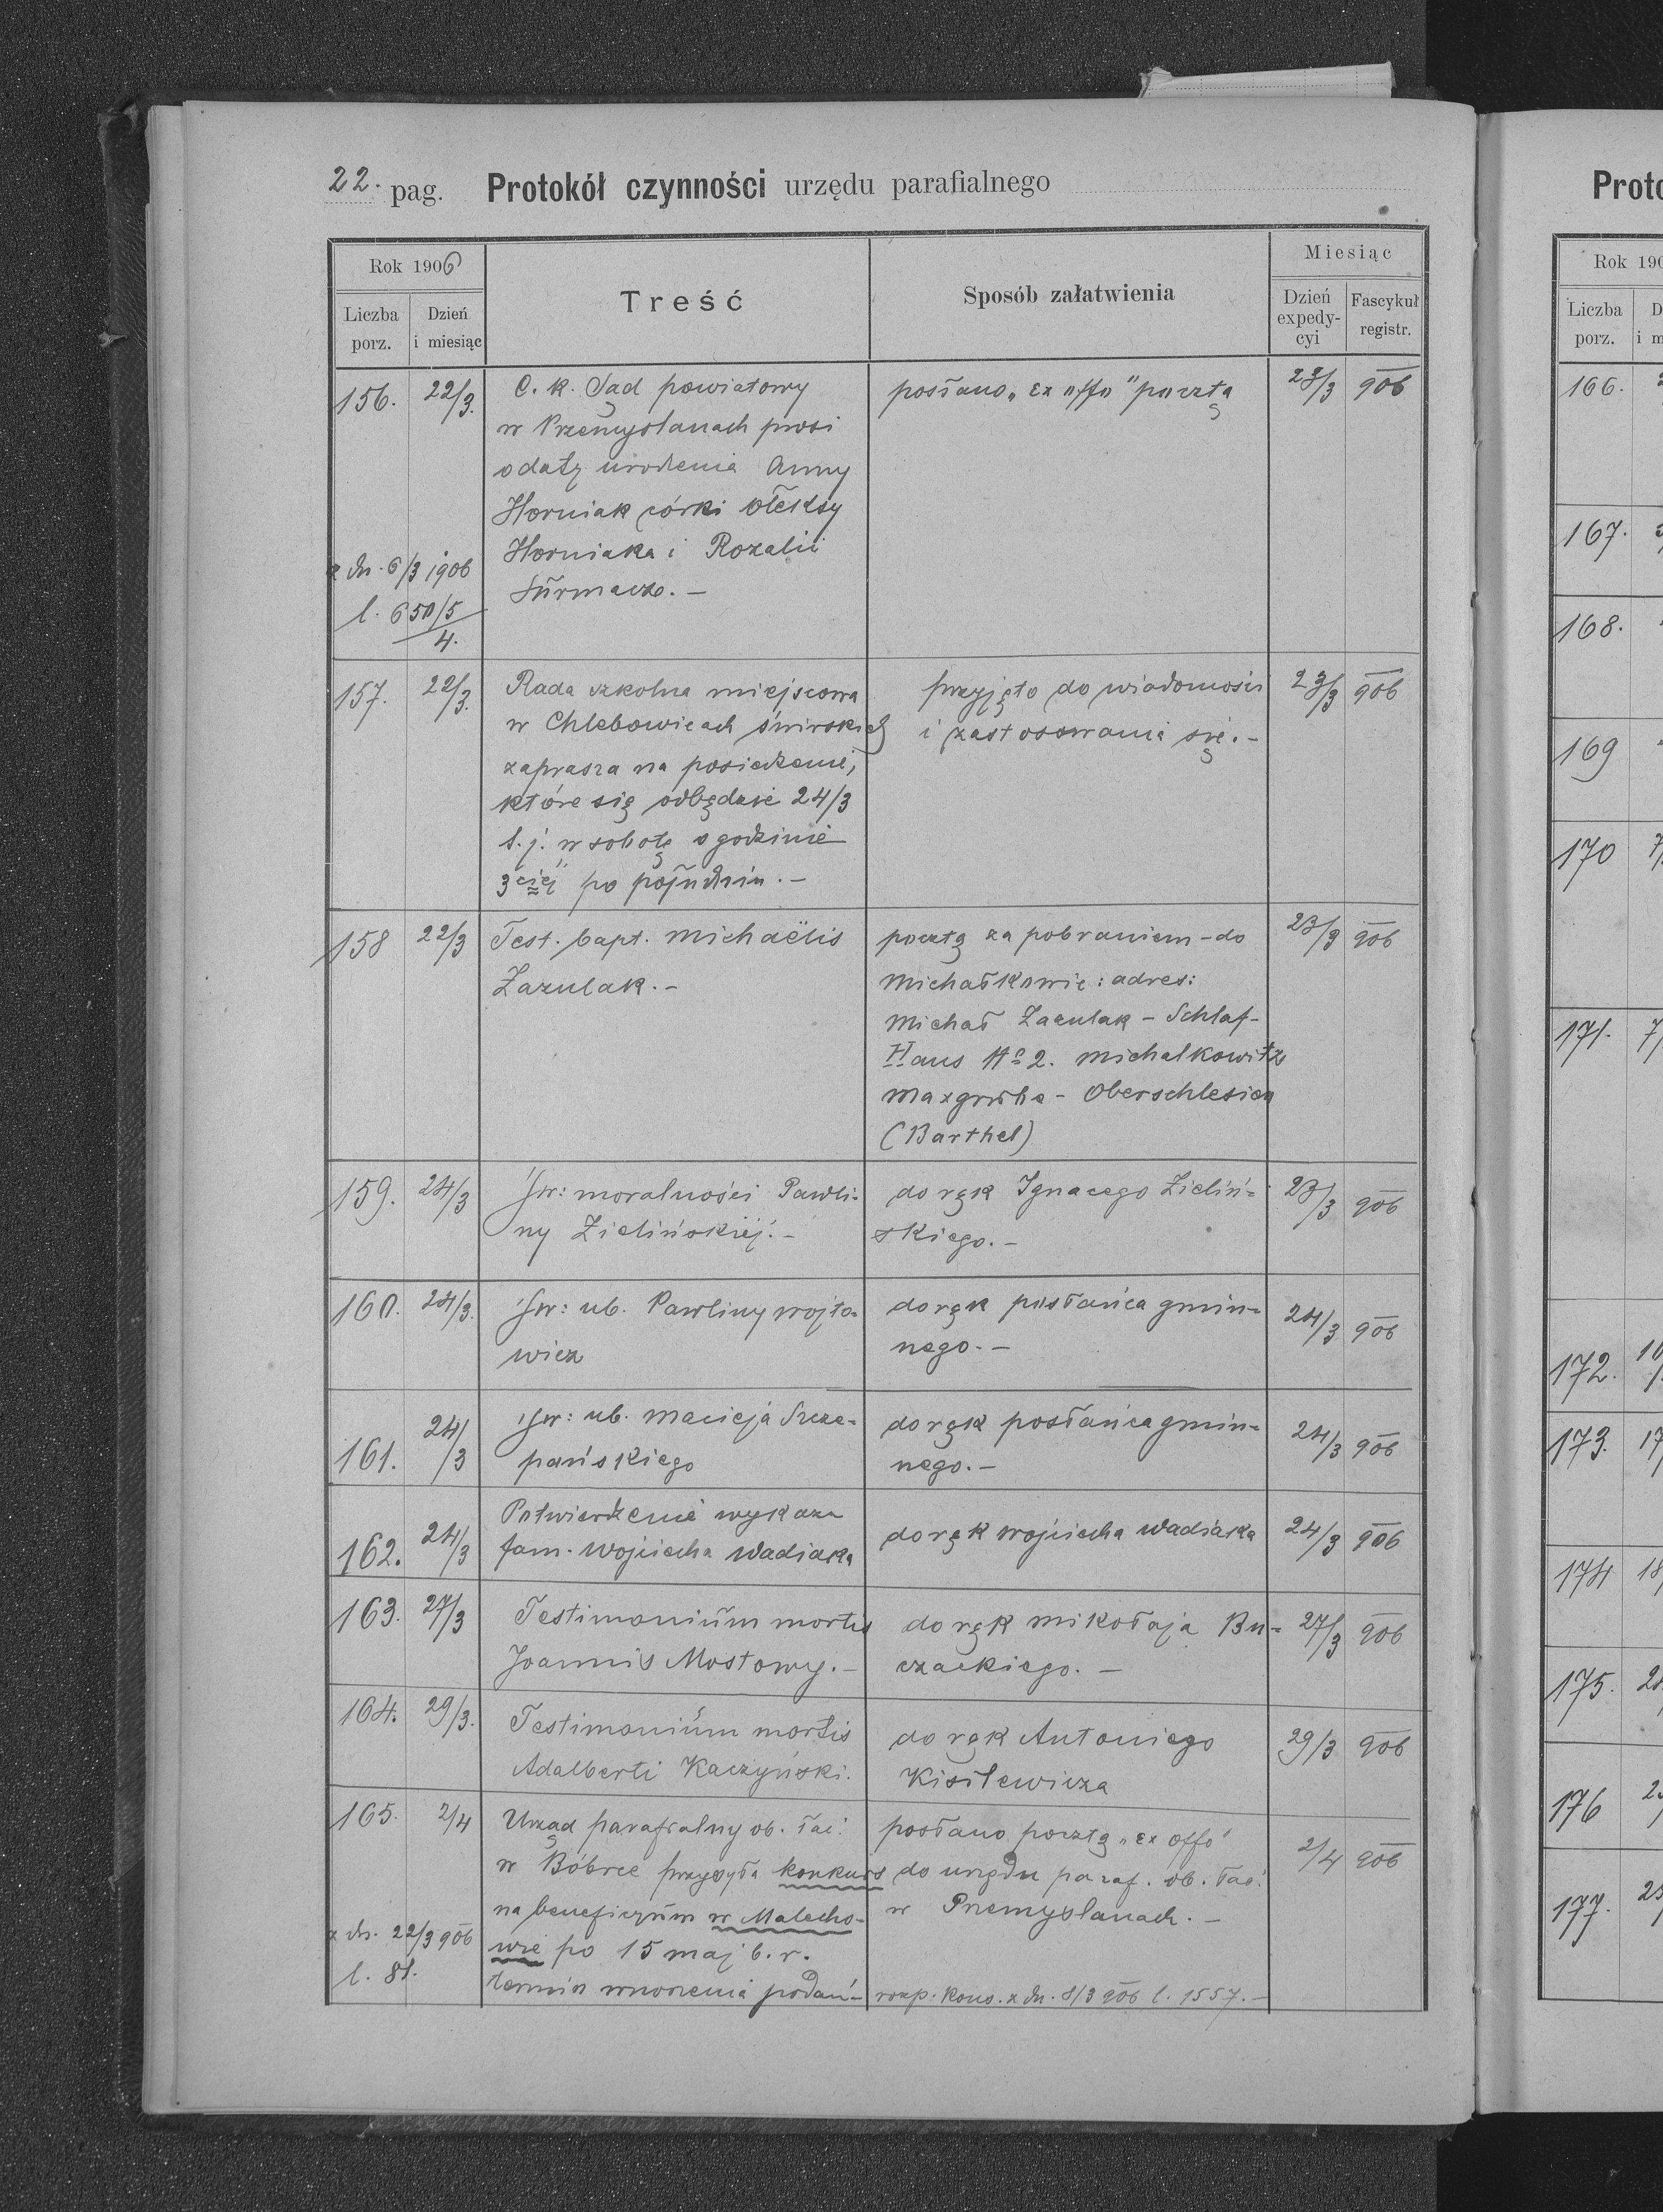 22. pag. Protokół czynności urzędu parafialnego
Rok 1906
Liczba porz.
Dzień i miesiąc
Treść
Sposób załatwienia
Miesiąc
Dzień expedycyi
Fascykuł registr.
156. 22/3.
C. k. Sąd powiatowy
w Przemyślanach prosi
o datę urodzenia Anny
Horniak córki Ołeksy
Horniaka i Rozalii
Surmacz. –
z dn. 6/3 1906
l. 650/5
4.
posłano „Ex offo" pocztą
23/3 906
157. 22/3.
Rada szkolna miejscowa
w Chlebowicach świrskich
zaprasza na posiedzenie,
które się odbędzie 24/3
t. j. w sobotę o godzinie
3ciej po południu. –
przyjęto do wiadomości
i zastosowania się. –
23/3 906
158 22/3
Test. bapt. Michaëlis
Zazulak. –
pocztą za pobraniem – do
Michałkowic: adres:
Michał Zazulak – Schlaf-
Haus No 2. Michalkowitz
Maxgrube – Oberschlesien
(Barthel)
23/3 906
159. 24/3
Św: moralności Pawli-
ny Zielińskiej. –
do rąk Ignacego Zieliń-
skiego. –
23/3 906
160. 24/3.
Św: ub. Pawliny Wojto-
wicz
do rąk posłańca gmin-
nego. –
24/3 906
161. 24/3
Św: ub. Macieja Szcze-
pańskiego
do rąk posłańca gmin-
nego. –
24/3 906
162. 24/3
Potwierdzenie wykazu
fam. Wojciecha Wadiaka
do rąk Wojciecha Wadiaka
24/3 906
163. 27/3
Testimonium mortis
Joannis Mostowy. –
do rąk Mikołaja Bu-
czackiego. –
27/3 906
164. 29/3.
Testimonium mortis
Adalberti Kaczyński.
do rąk Antoniego
Kisilewicza
29/3 906
165. 2/4
Urząd parafialny ob. łać.
w Bóbrce przysyła konkurs
na beneficyum w Malecho-
wie po 15 maj b. r.
termin wnoszenia podań –
z dn. 22/3 906
l. 81.
posłano pocztą „ex offo"
do urzędu paraf. ob. łać.
w Przemyślanach. –
rozp. Kons. z dn. 8/3 906 l. 1557. –
2/4 906
Proto
Rok 190
Liczba porz.
D
i m
166.
167.
168.
169
170 7/
171. 7/
172. 10/
173. 17
174 18/
175. 2
176 2
177. 2